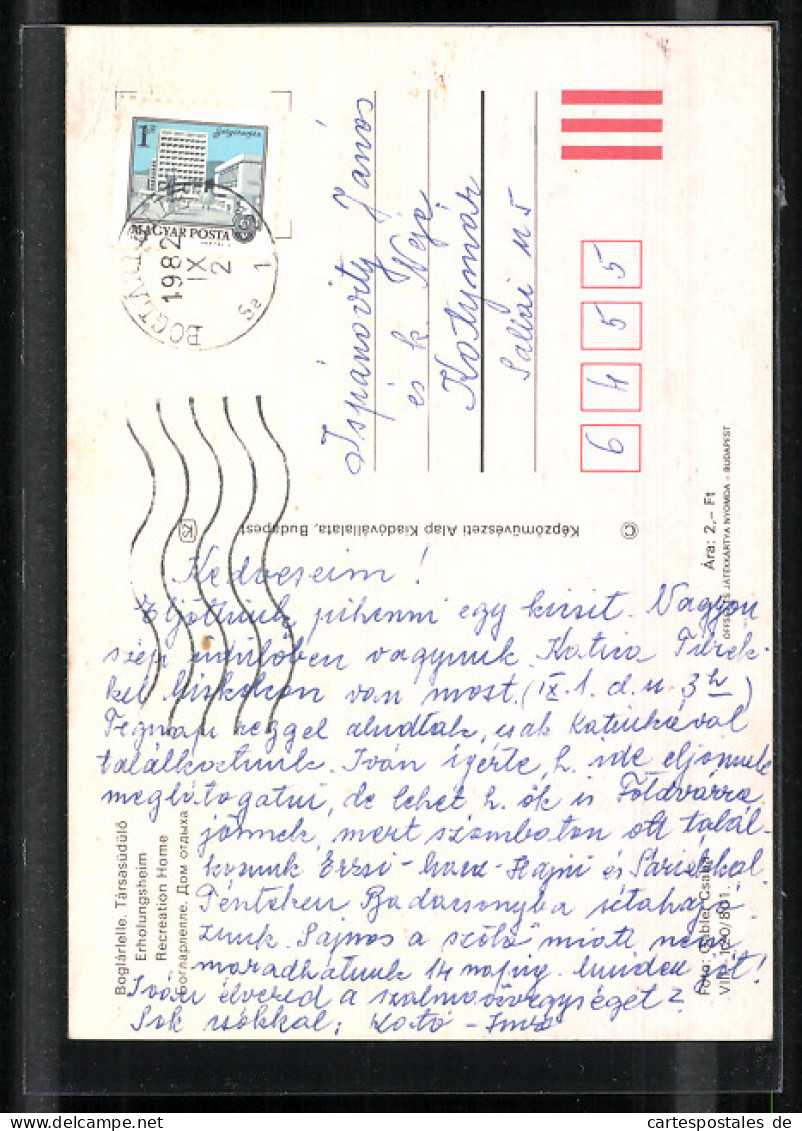 1 Ft
Salgótarján
MAGYAR POSTA
BOGLÁRLELLE
1982
IX
2
Sz 1
Ispánovity János
és k. Neje
Katymár
Sallai u 5
6 4 5 5
Képzőművészeti Alap Kiadóvállalata, Budapest
SZ
©
Ára: 2,– Ft
OFFSET ÉS JÁTÉKKÁRTYA NYOMDA – BUDAPEST
Kedveseim!
Eljöttünk pihenni egy kicsit. Nagyon
szép üdülőben vagyunk. Katica
van most. (IX. 1. d. u. 3 h)
Tegnap reggel aludtak, csak Katinkával
találkoztunk. Iván igérte, h. ide eljönnek
meglátogatni, de lehet h. ők is Földvárra
jönnek, mert szombaton ott talál-
kozunk Erzsi - - Hajni és Sariékkal.
Pénteken Badacsonyba sétahajó-
zunk. Sajnos a szőlő miatt nem
maradhatunk 14 napig. Minden jót!
Iván élvezed a szalmaözvegységet?
Sok csókkal: Kató - Imre
Boglárlelle. Társasüdülő
Erholungsheim
Recreation Home
Богларлелле. Дом отдыха
Foto: Gábler Csaba
VIII-120/801
www.cartespostales.de
cartespostales.de